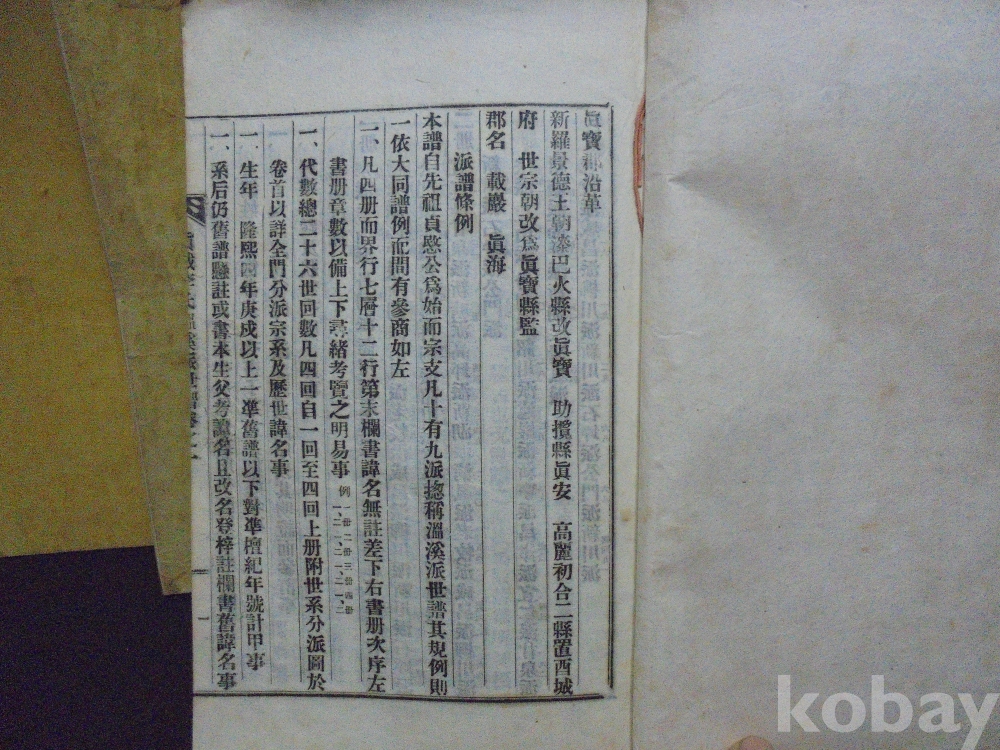 眞寶 沿革
新羅景德王朝 巴火縣改眞寶 助攬縣眞安 高麗初合二縣置 城
府 世宗朝改爲眞寶縣監
郡名 載巖 眞海
派譜條例
本譜自先祖貞愍公爲始而宗支凡十有九派摠稱溫溪派世譜其規例則
一依大同譜例而間有參商如左
一、凡四册而界行七層十二行第末欄書諱名無註差下右書册次序左
書册章數以備上下尋緖考覽之明易事 例 一册 二册 三册 四册 一、二、
一、代數總二十六世回數凡四回自一回至四回上册附世系分派圖於
卷首以詳全門分派宗系及歷世諱名事
一、生年 隆熙四年庚戌以上一準舊譜以下對準檀紀年號計甲事
一、系后仍舊譜懸註或書本生父考諱名且改名登梓註欄書舊諱名事
一
kobay